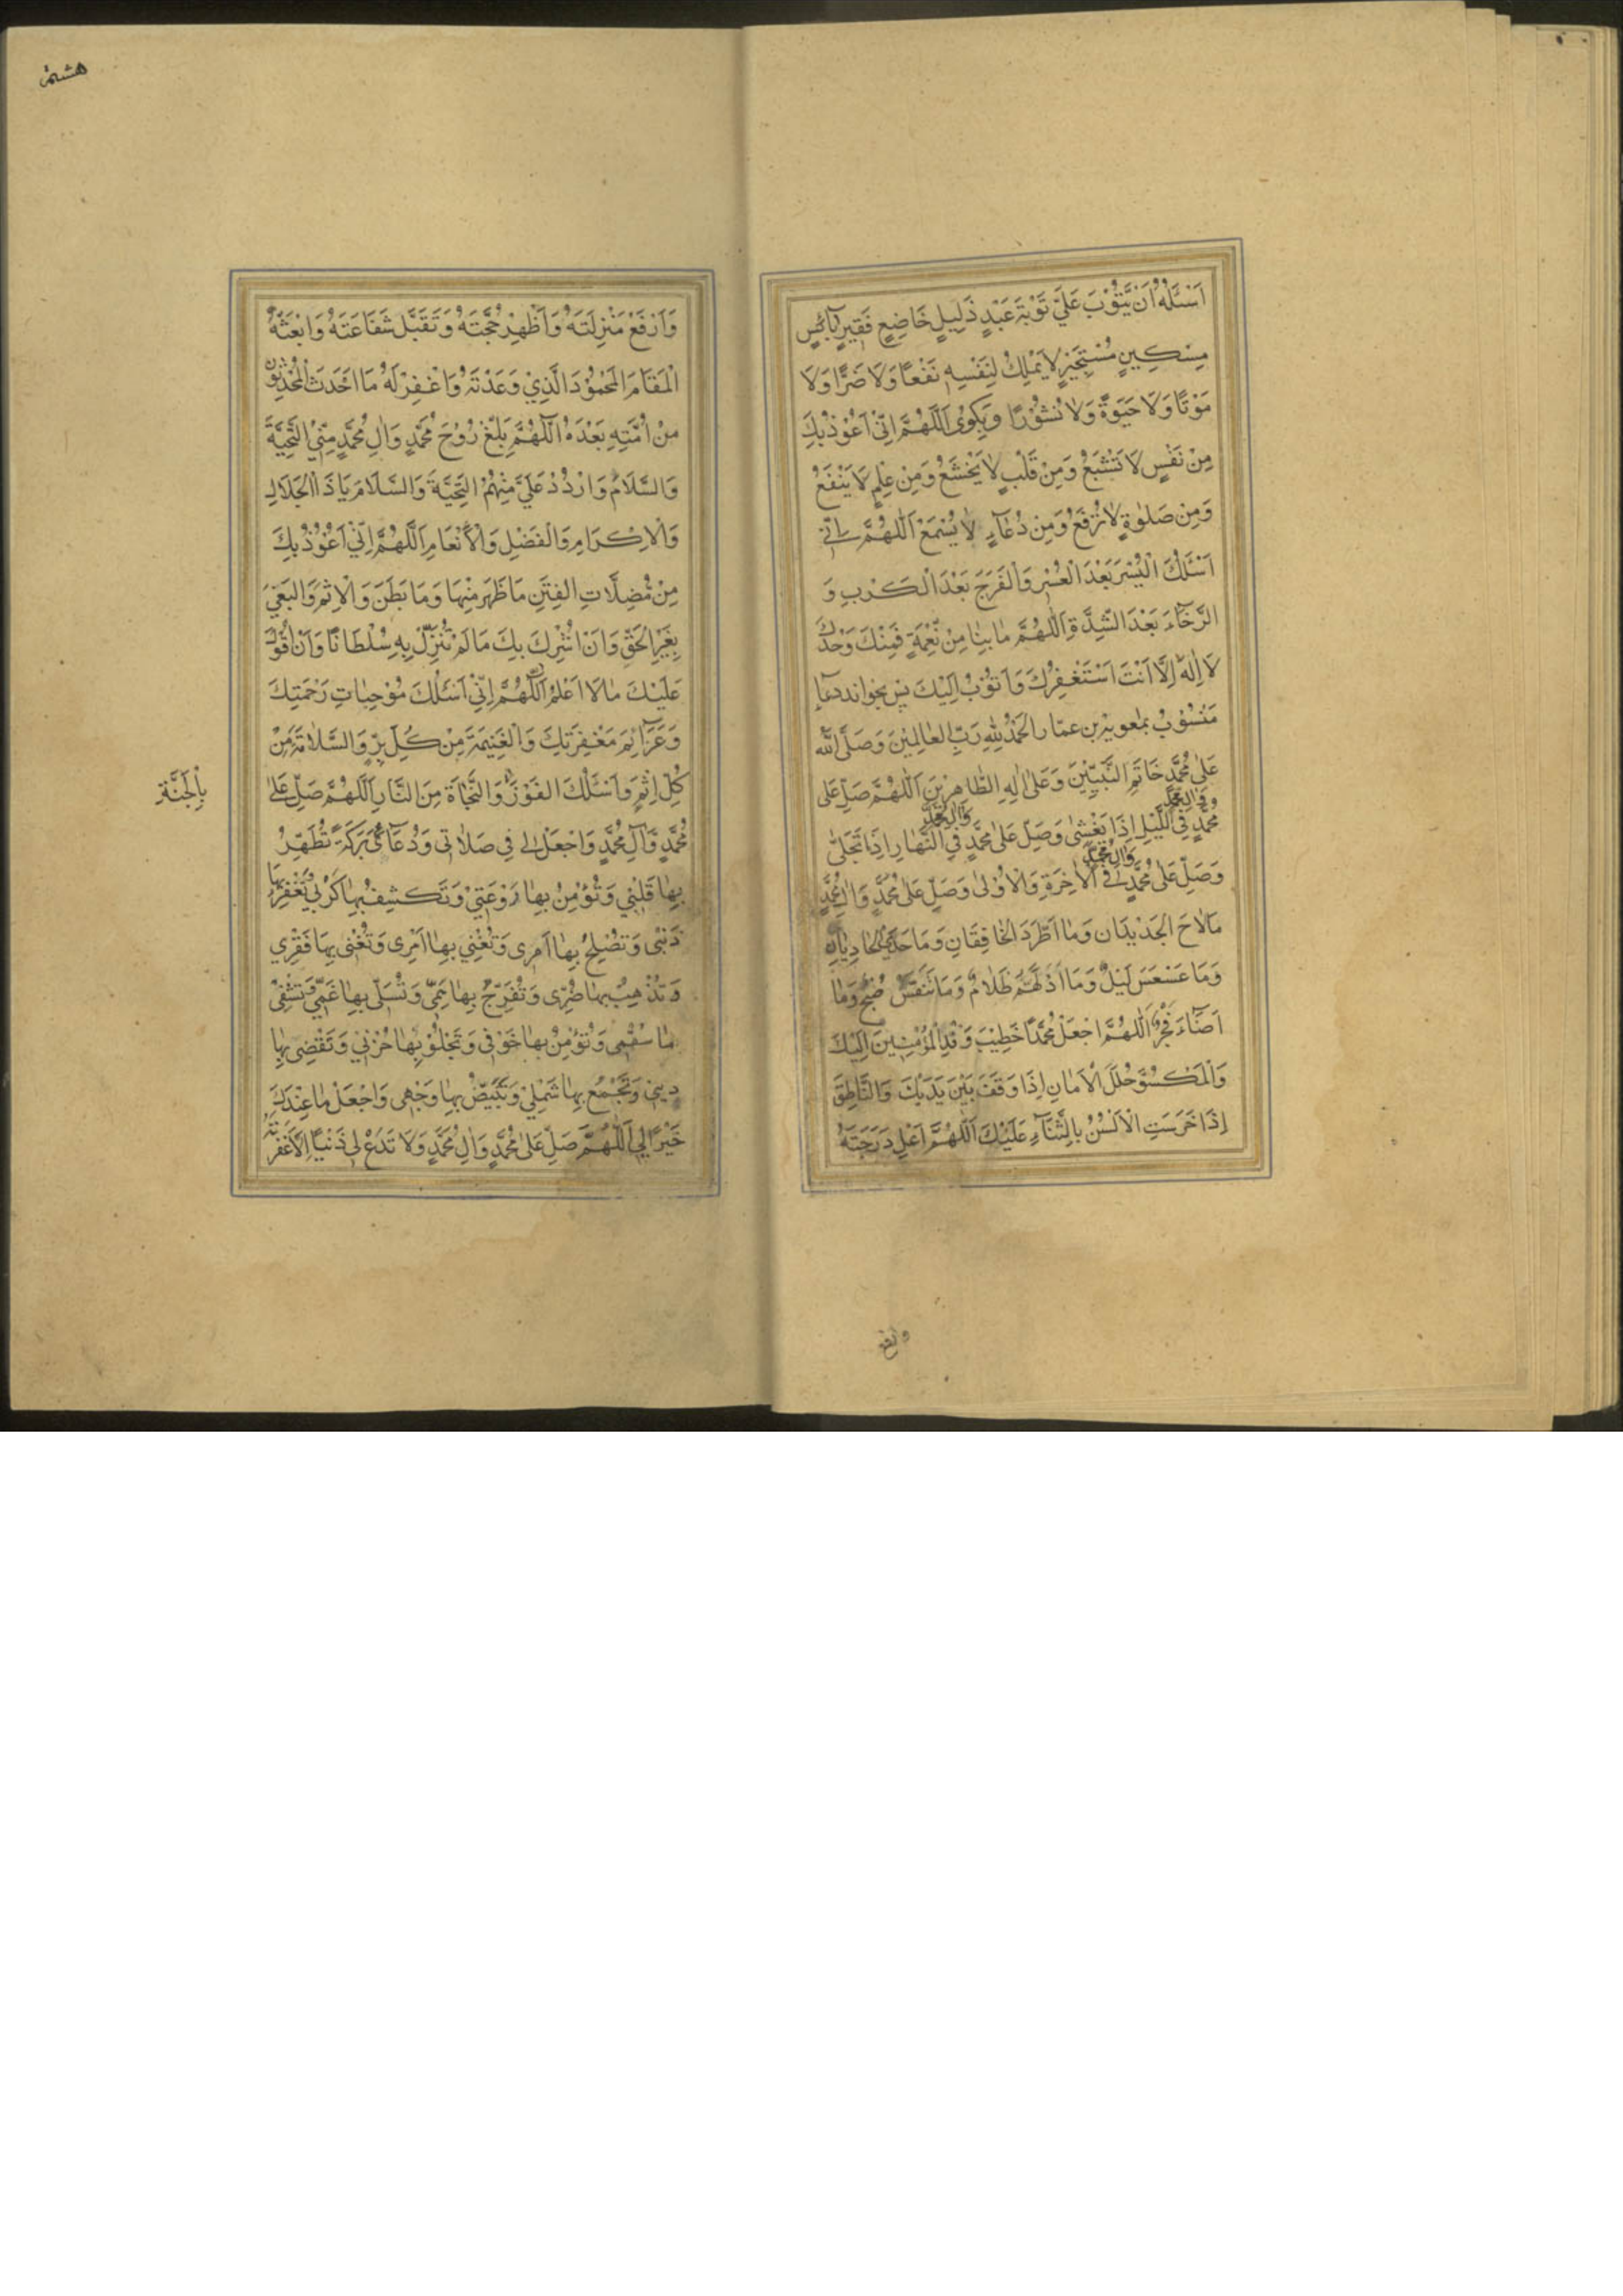 اَسْئَلُهُ اَنْ يَتُوْبَ عَلَيَّ تَوْبَةَ عَبْدٍ ذَلِيلٍ خَاضِعٍ فَقِيرٍ بَآئِسٍ
مِسْكِينٍ مُسْتَجِيرٍ لَا يَمْلِكُ لِنَفْسِهِ نَفْعًا وَلَا ضَرًّا وَلَا
مَوْتًا وَلَا حَيٰوةً وَلَا نُشُوْرًا و بگوى اَللّٰهُمَّ اِنّى اَعُوْذُ بِكَ
مِنْ نَفْسٍ لَا تَشْبَعُ وَمِنْ قَلْبٍ لَا يَخْشَعُ وَمِنْ عِلْمٍ لَا يَنْفَعُ
وَمِنْ صَلٰوةٍ لَا تُرْفَعُ وَمِنْ دُعَآءٍ لَا يُسْمَعُ اَللّٰهُمَّ اِنّى
اَسْئَلُكَ الْيُسْرَ بَعْدَ الْعُسْرِ وَالْفَرَجَ بَعْدَ الْكَرْبِ وَ
الرَّخَآءَ بَعْدَ الشِّدَّةِ اَللّٰهُمَّ مَا بِنَا مِنْ نِعْمَةٍ فَمِنْكَ وَحْدَكَ
لَا اِلٰهَ اِلَّا اَنْتَ اَسْتَغْفِرُكَ وَاَتُوْبُ اِلَيْكَ پس بخواند دعاء
مَنْسُوْبْ بمعوية بن عمّار اَلْحَمْدُ لِلّٰهِ رَبِّ الْعَالَمِيْنَ وَصَلَّى اللّٰهُ
عَلٰى مُحَمَّدٍ خَاتَمِ النَّبِيّيْنَ وَعَلٰى اٰلِهِ الطَّاهِرِيْنَ اَللّٰهُمَّ صَلِّ عَلٰى
مُحَمَّدٍ وَاٰلِ مُحَمَّدٍ فِى اللَّيْلِ اِذَا يَغْشٰى وَصَلِّ عَلٰى مُحَمَّدٍ وَاٰلِ مُحَمَّدٍ فِى النَّهَارِ اِذَا تَجَلّٰى
وَصَلِّ عَلٰى مُحَمَّدٍ وَاٰلِ مُحَمَّدٍ فِى الْاٰخِرَةِ وَالْاُوْلٰى وَصَلِّ عَلٰى مُحَمَّدٍ وَاٰلِ مُحَمَّدٍ
مَا لَاحَ الْجَدِيْدَانِ وَمَا اطَّرَدَ الْخَافِقَانِ وَمَا حَدَى الْحَادِيَانِ
وَمَا عَسْعَسَ لَيْلٌ وَمَا ادْلَهَمَّ ظَلَامٌ وَمَا تَنَفَّسَ صُبْحٌ وَمَا
اَضَآءَ فَجْرٌ اَللّٰهُمَّ اجْعَلْ مُحَمَّدًا خَطِيْبَ وَفْدِ الْمُؤْمِنِيْنَ اِلَيْكَ
وَالْمَكْسُوَّ حُلَلَ الْاَمَانِ اِذَا وَقَفَ بَيْنَ يَدَيْكَ وَالنَّاطِقَ
اِذَا خَرَسَتِ الْاَلْسُنُ بِالثَّنَآءِ عَلَيْكَ اَللّٰهُمَّ اَعْلِ دَرَجَتَهُ
وارفع
هشتم
وَارْفَعْ مَنْزِلَتَهُ وَاَظْهِرْ حُجَّتَهُ وَتَقَبَّلْ شَفَاعَتَهُ وَابْعَثْهُ
الْمَقَامَ الْمَحْمُوْدَ الَّذِيْ وَعَدْتَهُ وَاغْفِرْ لَهُ مَا اَحْدَثَ الْمُحْدِثُوْنَ
مِنْ اُمَّتِهِ بَعْدَهُ اَللّٰهُمَّ بَلِّغْ رُوْحَ مُحَمَّدٍ وَاٰلِ مُحَمَّدٍ مِنِّي التَّحِيَّةَ
وَالسَّلَامَ وَارْدُدْ عَلَيَّ مِنْهُمُ التَّحِيَّةَ وَالسَّلَامَ يَا ذَا الْجَلَالِ
وَالْاِكْرَامِ وَالْفَضْلِ وَالْاَنْعَامِ اَللّٰهُمَّ اِنِّيْ اَعُوْذُ بِكَ
مِنْ مُضِلَّاتِ الْفِتَنِ مَا ظَهَرَ مِنْهَا وَمَا بَطَنَ وَالْاِثْمِ وَالْبَغْيِ
بِغَيْرِ الْحَقِّ وَاَنْ اُشْرِكَ بِكَ مَا لَمْ تُنَزِّلْ بِهِ سُلْطَانًا وَاَنْ اَقُوْلَ
عَلَيْكَ مَا لَا اَعْلَمُ اَللّٰهُمَّ اِنِّيْ اَسْئَلُكَ مُوْجِبَاتِ رَحْمَتِكَ
وَعَزَآئِمَ مَغْفِرَتِكَ وَالْغَنِيْمَةَ مِنْ كُلِّ بِرٍّ وَالسَّلَامَةَ مِنْ
كُلِّ اِثْمٍ وَاَسْئَلُكَ الْفَوْزَ وَالنَّجَاةَ مِنَ النَّارِ اَللّٰهُمَّ صَلِّ عَلٰى
بِالْجَنَّةِ
مُحَمَّدٍ وَاٰلِ مُحَمَّدٍ وَاجْعَلْ لِى فِى صَلَاتِى وَدُعَآئِى بَرَكَةً تُطَهِّرُ
بِهَا قَلْبِيْ وَتُؤْمِنُ بِهَا رَوْعَتِيْ وَتَكْشِفُ بِهَا كَرْبِيْ وَتَغْفِرُ بِهَا
ذَنْبِى وَتُصْلِحُ بِهَا اَمْرِى وَتُغْنِى بِهَا اَمْرِى وَتُغْنِى بِهَا فَقْرِي
وَتُذْهِبُ بِهَا ضُرِّى وَتُفَرِّجُ بِهَا هَمِّى وَتُسَلِّى بِهَا غَمِّى وَتَشْفِىْ
بِهَا سُقْمِى وَتُؤْمِنُ بِهَا خَوْفِى وَتَجْلُوْ بِهَا حُزْنِيْ وَتَقْضِى بِهَا
دِيْنِي وَتَجْمَعُ بِهَا شَمْلِيْ وَتُبَيِّضُ بِهَا وَجْهِى وَاجْعَلْ مَا عِنْدَكَ
خَيْرًا لِى اَللّٰهُمَّ صَلِّ عَلٰى مُحَمَّدٍ وَاٰلِ مُحَمَّدٍ وَلَا تَدَعْ لِى ذَنْبًا اِلَّا غَفَرْتَهُ